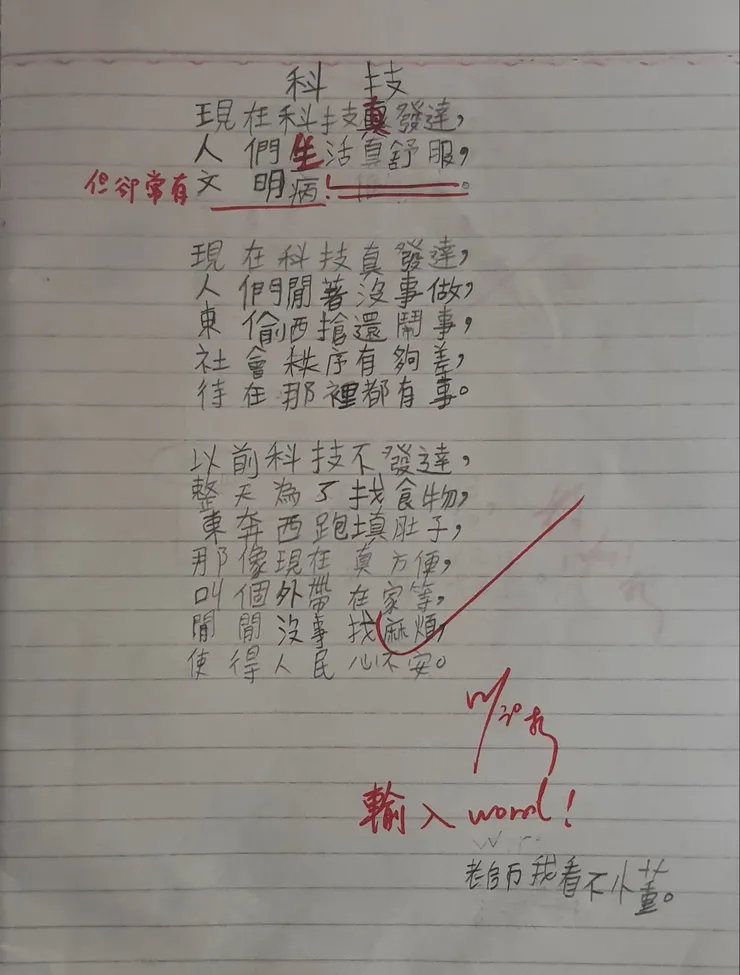 科技
現在科技真發達，
人們生活真舒服，
但卻常有文明病！。
現在科技真發達，
人們閒著沒事做，
東偷西搶還鬧事，
社會秩序有夠差，
待在那裡都有事。
以前科技不發達，
整天為了找食物，
東奔西跑填肚子，
那像現在真方便，
叫個外帶在家等，
閒閒沒事找麻煩，
使得人民心不安。
輸入word！
老師我看不小董。